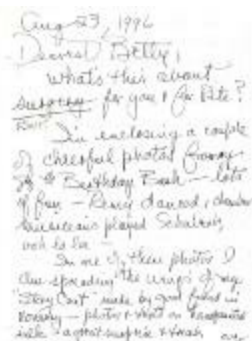 Aug 23, 1996
Dearest Betty,
What's this about
surgery for you & for Pete?
I'm enclosing a couple
of cheerful photos from
Birthday Bash - lots
of fun - Remy danced, chamber
musicians played Schubert,
ooh la la -
In one of these photos I
am spreading the wings of my
"Story Coat" made by good friend in
- photos &
silk - a great surprise &